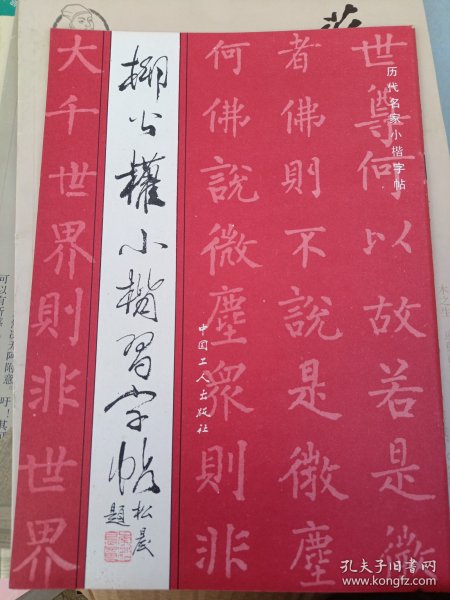 历代名家小楷字帖
世尊何以故若是微
者佛則不說是微塵
何佛說微塵眾則非
中国工人出版社
柳公權小楷習字帖
松晨
題
大千世界則非世界
孔夫子旧书网